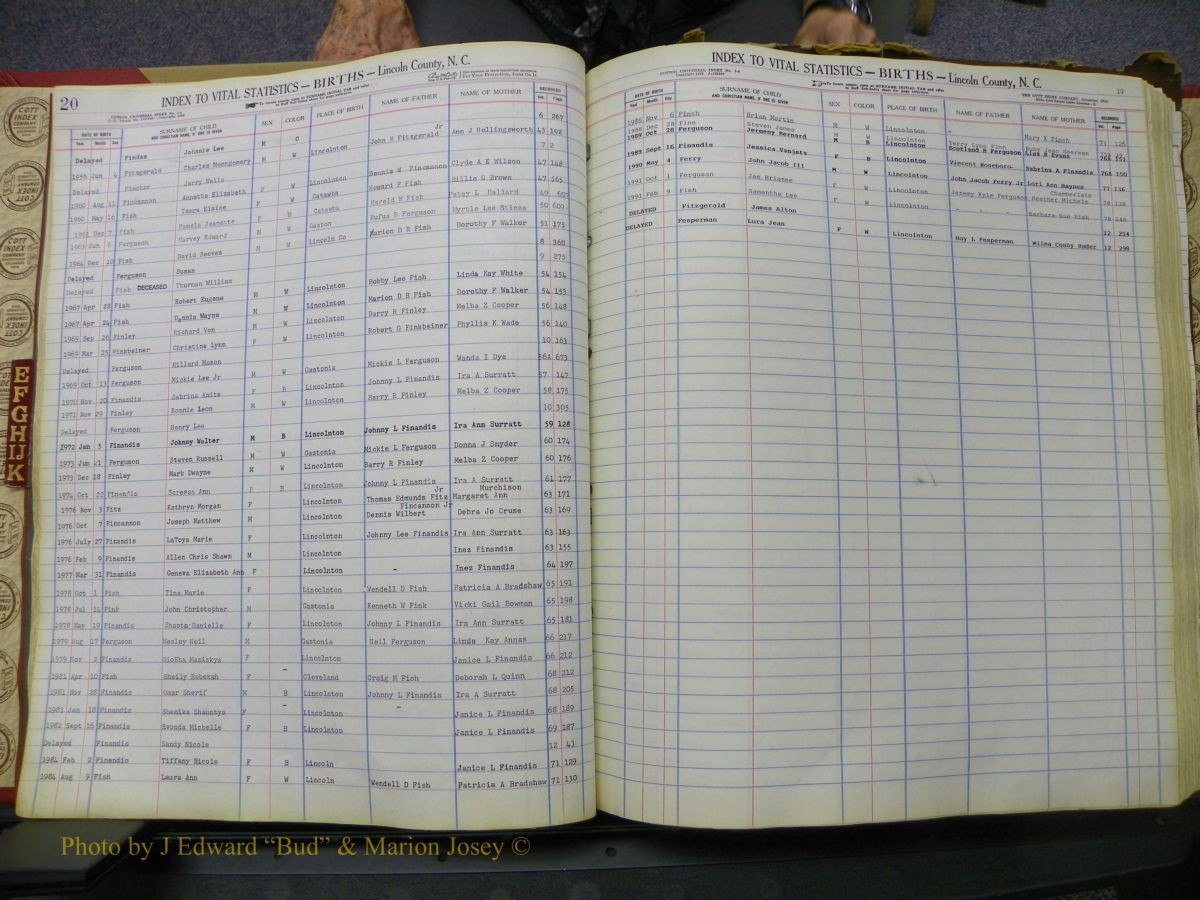 20
INDEX TO VITAL STATISTICS — BIRTHS — Lincoln County, N. C.
DATE OF BIRTH
Year Month Day
SURNAME OF CHILD
AND CHRISTIAN NAME, IF ONE IS GIVEN
SEX
COLOR
PLACE OF BIRTH
NAME OF FATHER
NAME OF MOTHER
RECORDED
Vol. Page
Delayed Findas Johnnie Lee M C 6 267
1936 Jun 4 Fitzgerald Charles Montgomery M W Lincolnton John H Fitzgerald Jr Ann J Hollingsworth 43 192
Delayed Fincher Jerry Walls 7 2
1960 Aug 11 Fincannon Annette Elizabeth F W Lincolnton Dennis W Fincannon Clyde A E Wilson 47 148
1960 May 16 Fish Tamra Elaine F W Catawba Howard F Fish Billie G Brown 47 565
1961 Dec 7 Fish Pamela Jeanette F W Catawba Harold W Fish Patsy L Ballard 49 607
1963 Jan 6 Ferguson Harvey Edward M W Gaston Rufus B Ferguson Myrtle Lee Stines 50 609
1964 Dec 10 Fish David Reeves M W Lincoln Co Marion D R Fish Dorothy F Walker 51 175
Delayed Ferguson Susan 8 360
Delayed Fish DECEASED Thurman William 9 275
1967 Apr 28 Fish Robert Eugene M W Lincolnton Bobby Lee Fish Linda Kay White 54 154
1967 Apr 24 Fish Dennis Wayne M W Lincolnton Marion D R Fish Dorothy F Walker 54 153
1969 Sep 26 Finley Richard Von M W Lincolnton Barry R Finley Melba Z Cooper 56 148
1969 Mar 25 Finkbeiner Christine Lynn F W Lincolnton Robert G Finkbeiner Phyllis K Wade 56 140
Delayed Ferguson Hillard Mason 10 163
1969 Oct 13 Ferguson Mickie Lee Jr M W Gastonia Mickie L Ferguson Wanda I Dye 56A 673
1970 Nov 20 Finandis Sabrina Anita F B Lincolnton Johnny L Finandis Ira A Surratt 57 147
1971 Nov 29 Finley Ronnie Leon M W Lincolnton Barry R Finley Melba Z Cooper 58 175
Delayed Ferguson Henry Lee 10 305
1972 Jan 5 Finandis Johnny Walter M B Lincolnton Johnny L Finandis Ira Ann Surratt 59 128
1973 Jun 21 Ferguson Steven Russell M W Gastonia Mickie L Ferguson Donna J Snyder 60 174
1973 Dec 18 Finley Mark Dwayne M W Lincolnton Barry R Finley Melba Z Cooper 60 176
1974 Oct 22 Finandis Saressa Ann F B Lincolnton Johnny L Finandis Ira A Surratt 61 177
1976 Nov 3 Fitz Kathryn Morgan F Lincolnton Thomas Edmunds Fitz Jr Margaret Ann Murchison 63 171
1976 Oct 7 Fincannon Joseph Matthew M Lincolnton Dennis Wilbert Fincannon Jr Debra Jo Cruse 63 169
1976 July 27 Finandis LaToya Marie F Lincolnton Johnny Lee Finandis Ira Ann Surratt 63 163
1976 Feb 9 Finandis Allen Chris Shawn M Lincolnton Inez Finandis 63 155
1977 Mar 31 Finandis Geneva Elizabeth Ann F Lincolnton - Inez Finandis 64 197
1978 Oct 1 Fish Tina Marie F Lincolnton Wendell D Fish Patricia A Bradshaw 65 191
1978 Jul 14 Fink John Christopher M Gastonia Kenneth W Fink Vicki Gail Bowman 65 198
1978 May 19 Finandis Shaeta Danielle F Lincolnton Johnny L Finandis Ira Ann Surratt 65 181
1979 Aug 17 Ferguson Wesley Neil M Gastonia Neil Ferguson Linda Kay Annas 66 217
1979 Nov 2 Finandis F Lincolnton Janice L Finandis 66 212
1981 Apr 10 Fish Sheily Rebekah F - Cleveland Craig M Fish Deborah L Quinn 68 212
1981 Nov 28 Finandis Omar Sherif M B Lincolnton Johnny L Finandis Ira A Surratt 68 205
1981 Jan 18 Finandis Shenika Shauntya F - Lincolnton - Janice L Finandis 68 189
1982 Sept 16 Finandis Evonda Michelle F B Lincolnton Janice L Finandis 69 187
Delayed Finandis Sandy Nicole 12 43
1984 Feb 2 Finandis Tiffany Nicole F B Lincoln Janice L Finandis 71 129
1984 Aug 9 Fish Laura Ann F W Lincoln Wendell D Fish Patricia A Bradshaw 71 130
INDEX TO VITAL STATISTICS — BIRTHS — Lincoln County, N. C.
19
DATE OF BIRTH
Year Month Day
SURNAME OF CHILD
AND CHRISTIAN NAME, IF ONE IS GIVEN
SEX
COLOR
PLACE OF BIRTH
NAME OF FATHER
NAME OF MOTHER
RECORDED
Vol. Page
1986 Nov 6 Finch Brian Martin M W Lincolnton - Mary K Finch 71 125
1988 Dec 28 Finn Steven James M W Lincolnton Terry Lynn Finn
1989 Oct 20 Ferguson Jermeny Bernard M B Lincolnton Scotland B Ferguson Lisa B Evans 76A 151
1989 Sept 16 Finandis Jessica Vanjets F B Lincolnton Vincent Roseboro Sabrina A Finandis 76A 150
1990 May 4 Ferry John Jacob III M W Lincolnton John Jacob Ferry Jr Lori Ann Haynes 77 136
1991 Oct 1 Ferguson Jae Brianne F W Lincolnton Jeremy Kyle Ferguson Heather Michele Chamberlain 78 138
1991 Feb 9 Fish Samantha Lee F W Lincolnton Barbara Sue Fish 78 140
DELAYED Fitzgerald James Alton 12 254
DELAYED Fesperman Lura Jean F W Lincolnton Hoy L Fesperman Wilma Cosby Rader 12 298
COTT INDEX COMPANY
E
F
G
H
IJ
K
Photo by J Edward “Bud” & Marion Josey ©